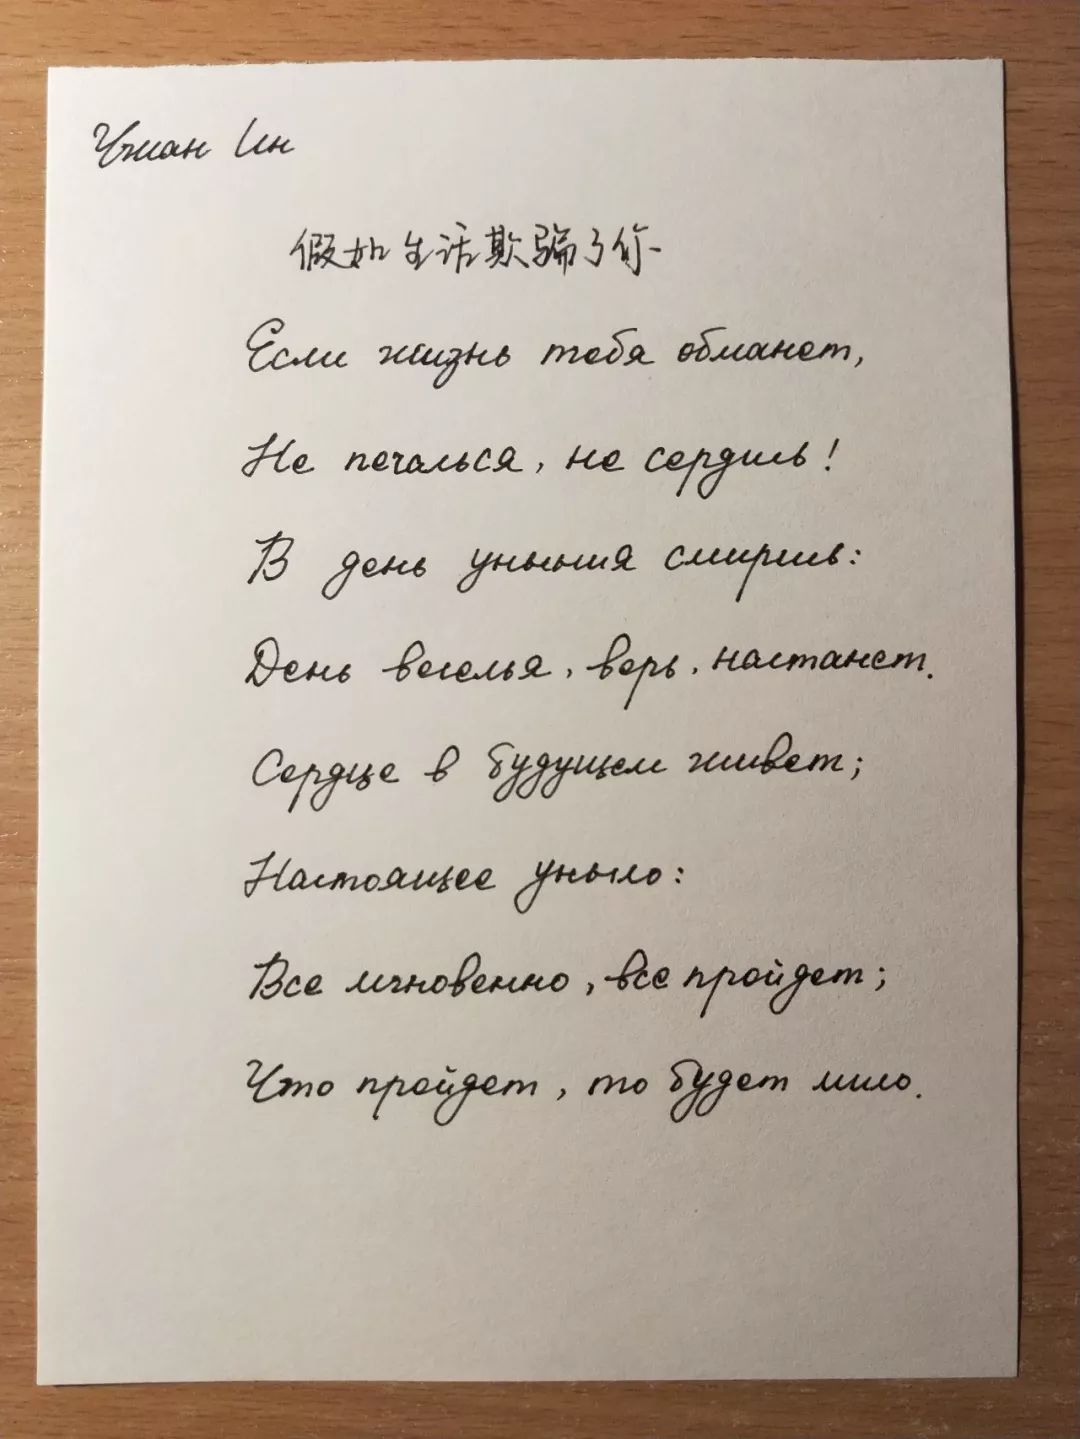 Чжан Ин
假如生活欺骗了你
Если жизнь тебя обманет,
Не печалься, не сердись!
В день уныния смирись:
День веселья, верь, настанет.
Сердце в будущем живет;
Настоящее уныло:
Все мгновенно, все пройдет;
Что пройдет, то будет мило.